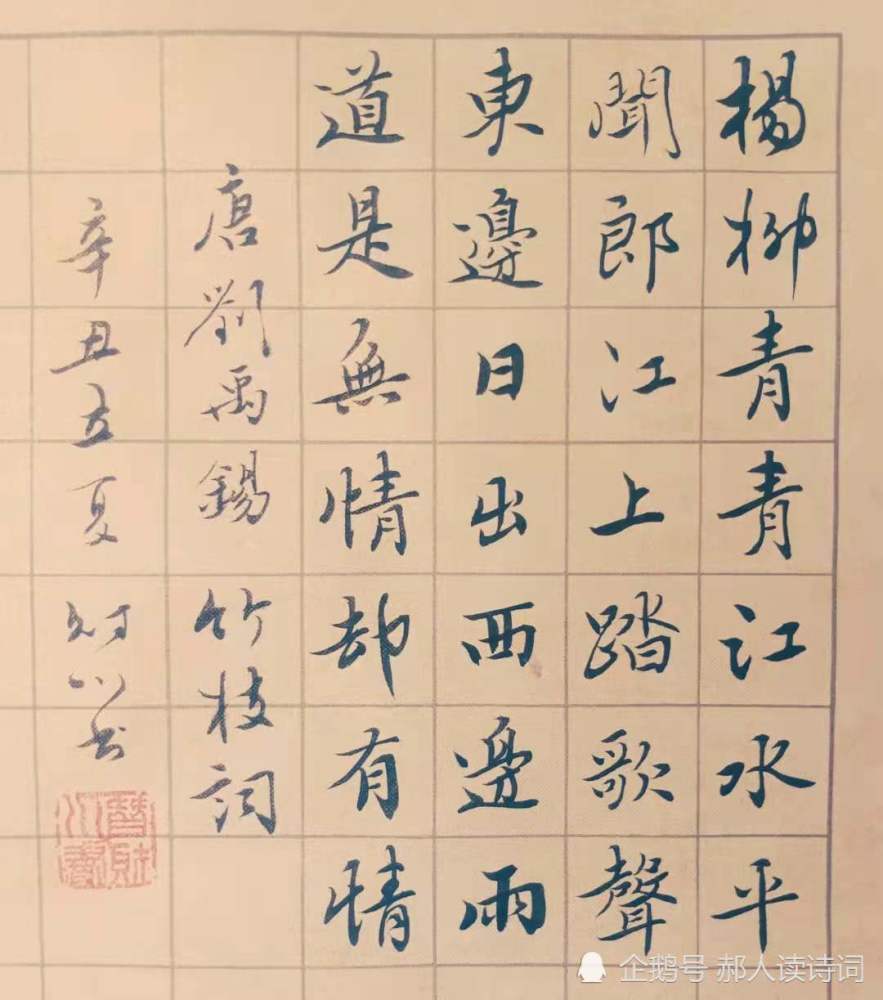 楊柳青青江水平
聞郎江上踏歌聲
東邊日出西邊雨
道是無情却有情
唐劉禹錫 竹枝詞
辛丑立夏 书
企鹅号 郝人读诗词